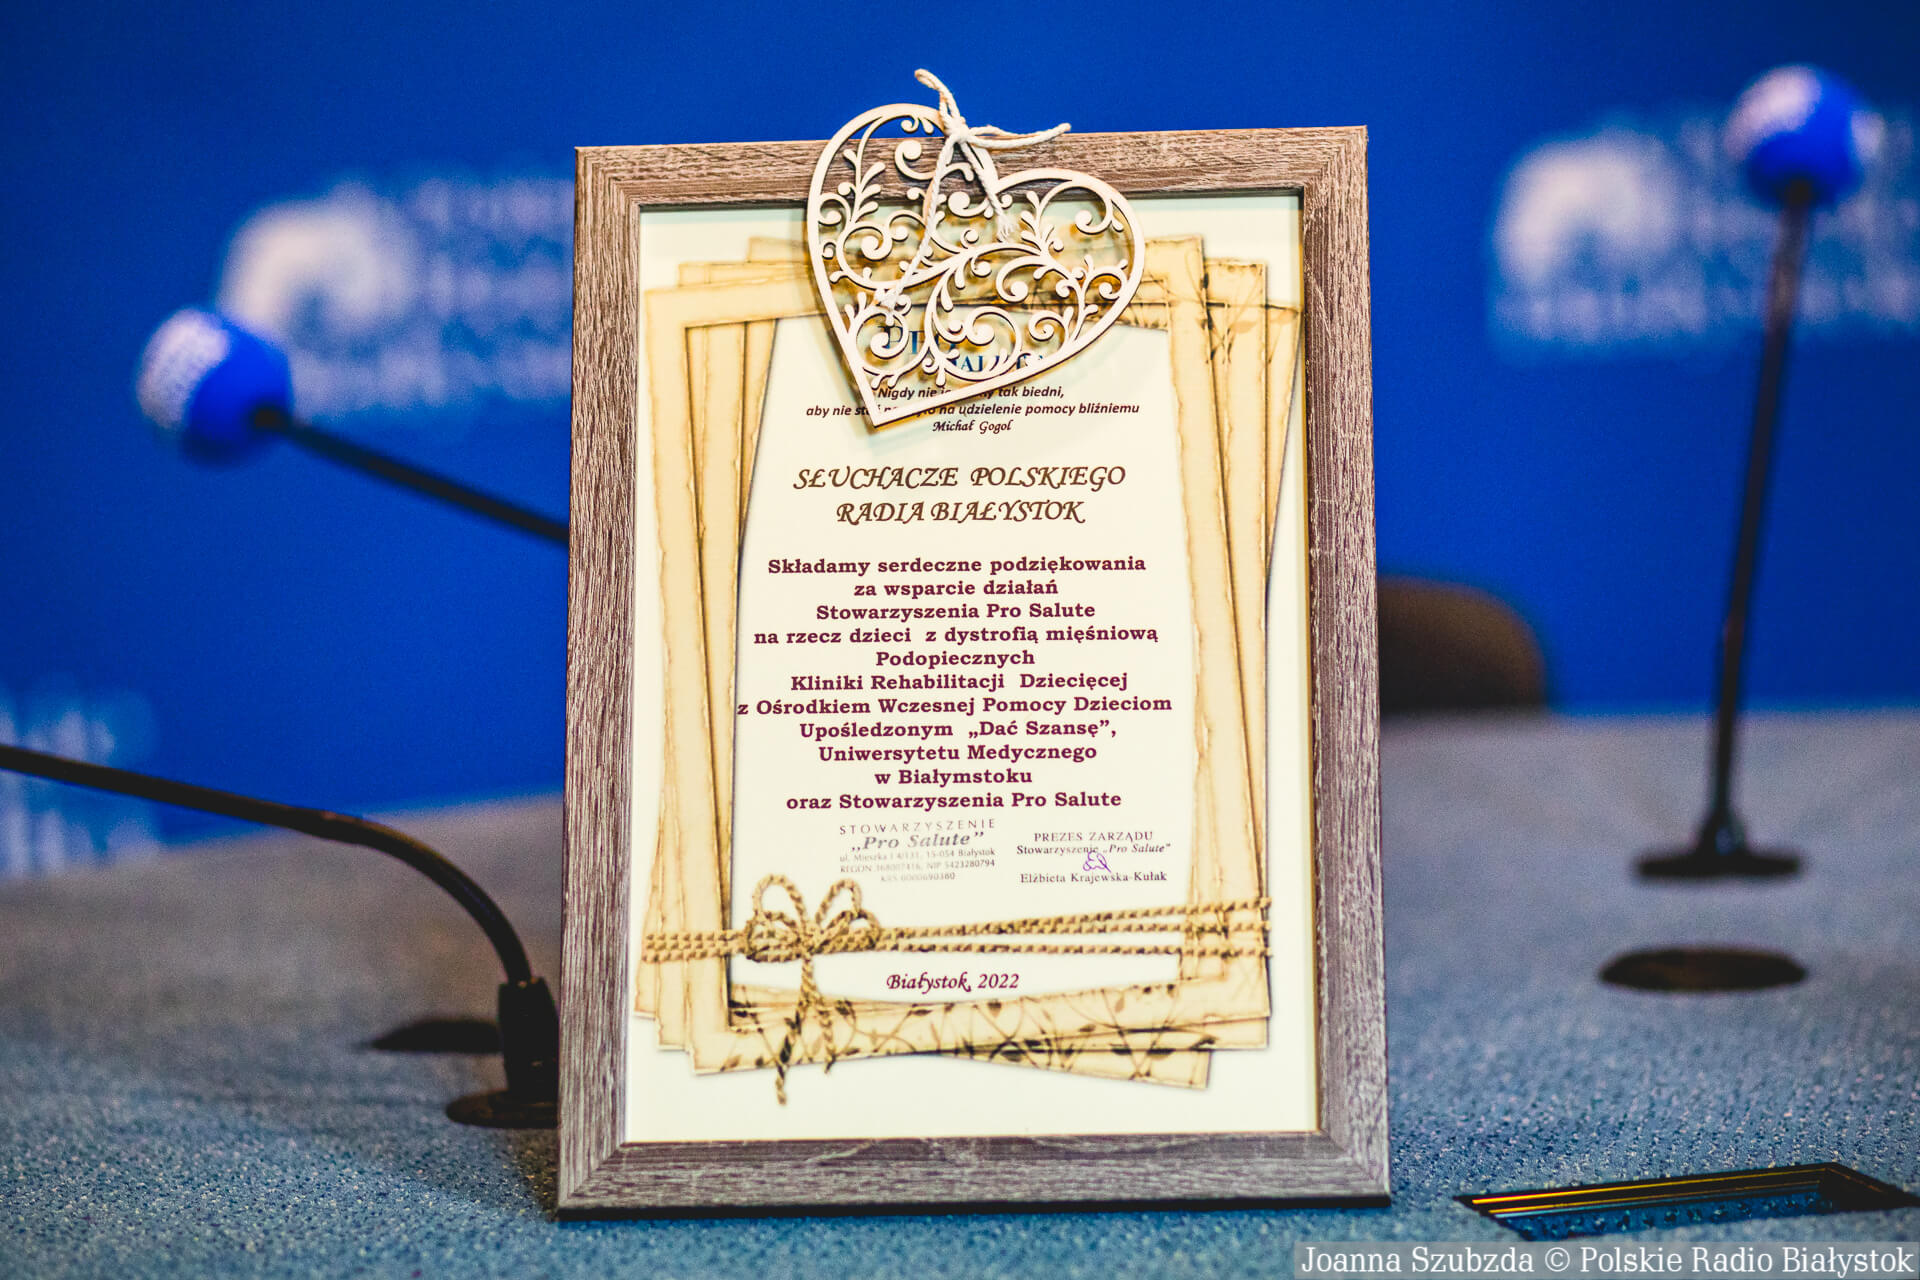 Nigdy nie tak biedni,
aby nie na udzielenie pomocy bliźniemu
Michał Gogol
SŁUCHACZE POLSKIEGO
RADIA BIAŁYSTOK
Składamy serdeczne podziękowania
za wsparcie działań
Stowarzyszenia Pro Salute
na rzecz dzieci z dystrofią mięśniową
Podopiecznych
Kliniki Rehabilitacji Dziecięcej
z Ośrodkiem Wczesnej Pomocy Dzieciom
Upośledzonym „Dać Szansę”,
Uniwersytetu Medycznego
w Białymstoku
oraz Stowarzyszenia Pro Salute
STOWARZYSZENIE
„Pro Salute”
ul. Mieszka I 4/131, 15-054 Białystok
REGON 368007416, NIP 5423280794
KRS 0000690380
PREZES ZARZĄDU
Stowarzyszenie „Pro Salute”
Elżbieta Krajewska-Kułak
Białystok, 2022
Joanna Szubzda © Polskie Radio Białystok